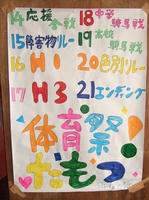 14応援合戦 18中学騎馬戦
15障害物リレー 19高校騎馬戦
16 H1 20色別リレー
17 H3 21エンディング
体育祭